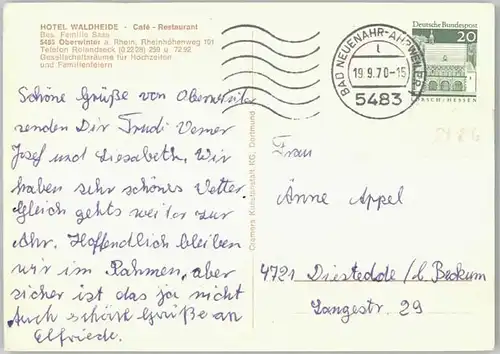 HOTEL WALDHEIDE - Café - Restaurant
Bes. Familie Sass
5485 Oberwinter a. Rhein, Rheinhöhenweg 101
Telefon Rolandseck (0 22 28) 259 u. 72 92
Gesellschaftsräume für Hochzeiten
und Familienfeiern
Schöne Grüße von Oberwinter
senden Dir Trudi Verner
Josef und Liesabeth. Wir
haben sehr schönes Wetter
Gleich gehts weiter zur
Ahr. Hoffendlich bleiben
wir im Rahmen, aber
sicher ist das ja nicht
Auch schöne Grüße an
Elfriede.
Cramers Kunstanstalt KG, Dortmund
BAD NEUENAHR-AHRWEILER
l
19.9.70-15
5483
Deutsche Bundespost
20
LORSCH/HESSEN
Frau
Änne Appel
4721 Diestedde /b. Beckum
Langestr. 29